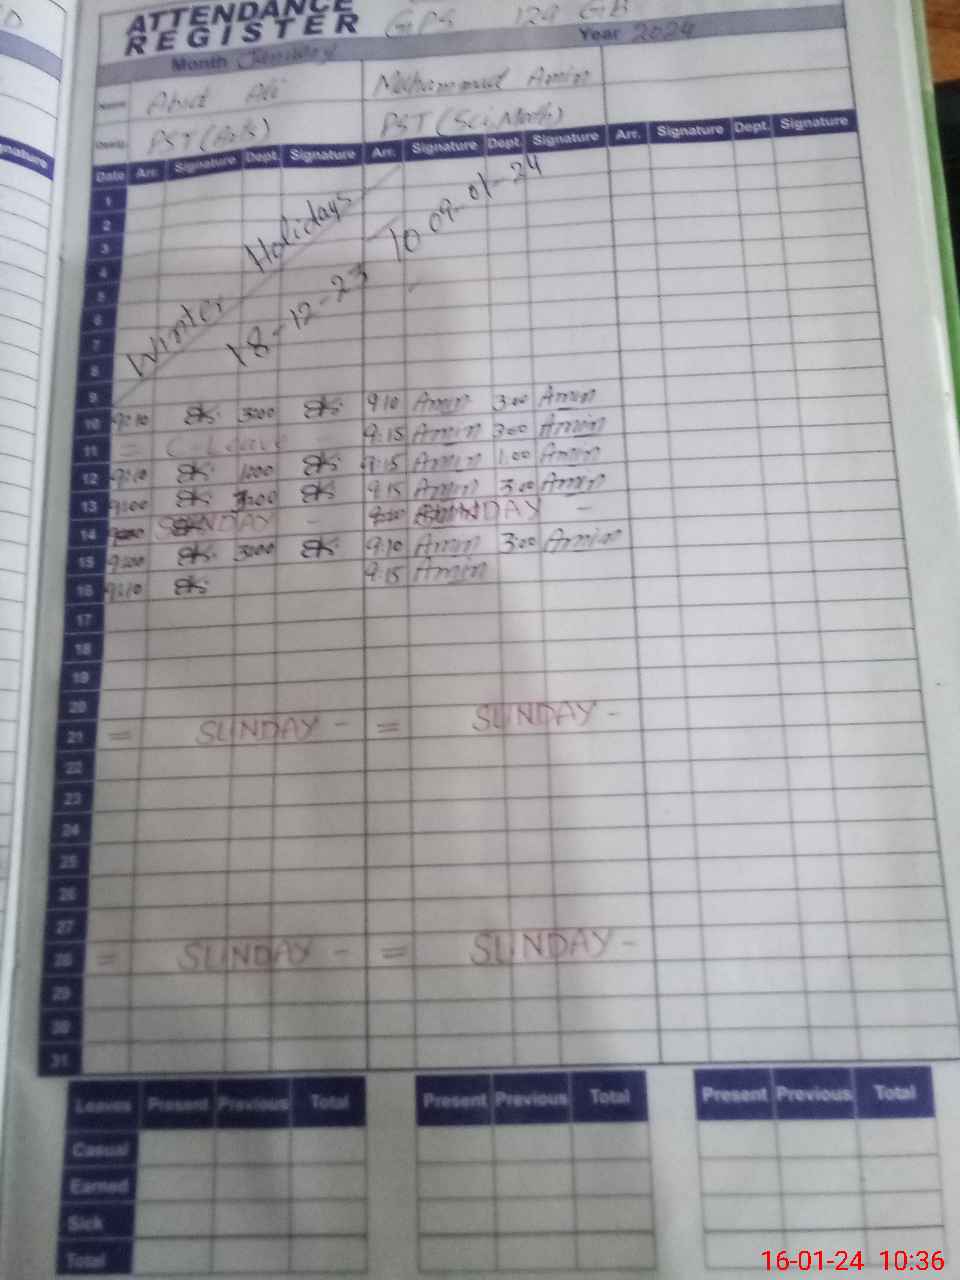 ATTENDANCE
REGISTER GPS 129 GB
Month January Year 2024
Name Abid Ali Muhammad Amin
Desig. PST (Arts) PST (Sci, Math)
Date Arr. Signature Dept. Signature Arr. Signature Dept. Signature Arr. Signature Dept. Signature
1
2
3
4
5
6
7
8
Winter Holidays
18-12-23 To 09-01-24
9
10 9:10 3:00 9:10 Amin 3:00 Amin
11 = C-Leave - 9:15 Amin 3:00 Amin
12 9:10 1:00 9:15 Amin 1:00 Amin
13 9:00 9:15 Amin 3:00 Amin
14 SUNDAY - SUNDAY -
15 9:00 3:00 9:10 Amin 3:00 Amin
16 9:10 9:15 Amin
17
18
19
20
21 = SUNDAY - = SUNDAY -
22
23
24
25
26
27
28 = SUNDAY - = SUNDAY -
29
30
31
Leaves Present Previous Total Present Previous Total Present Previous Total
Casual
Earned
Sick
Total
16-01-24 10:36